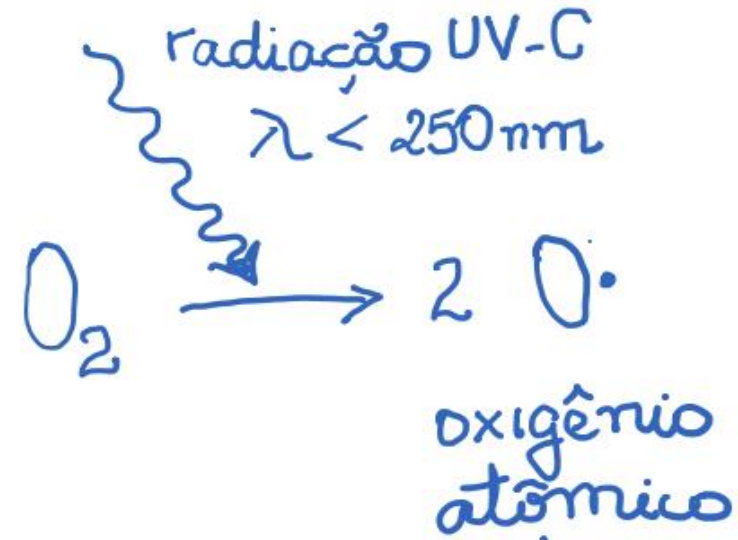 radiação UV-C
λ < 250nm
O₂ → 2 O•
oxigênio
atômico